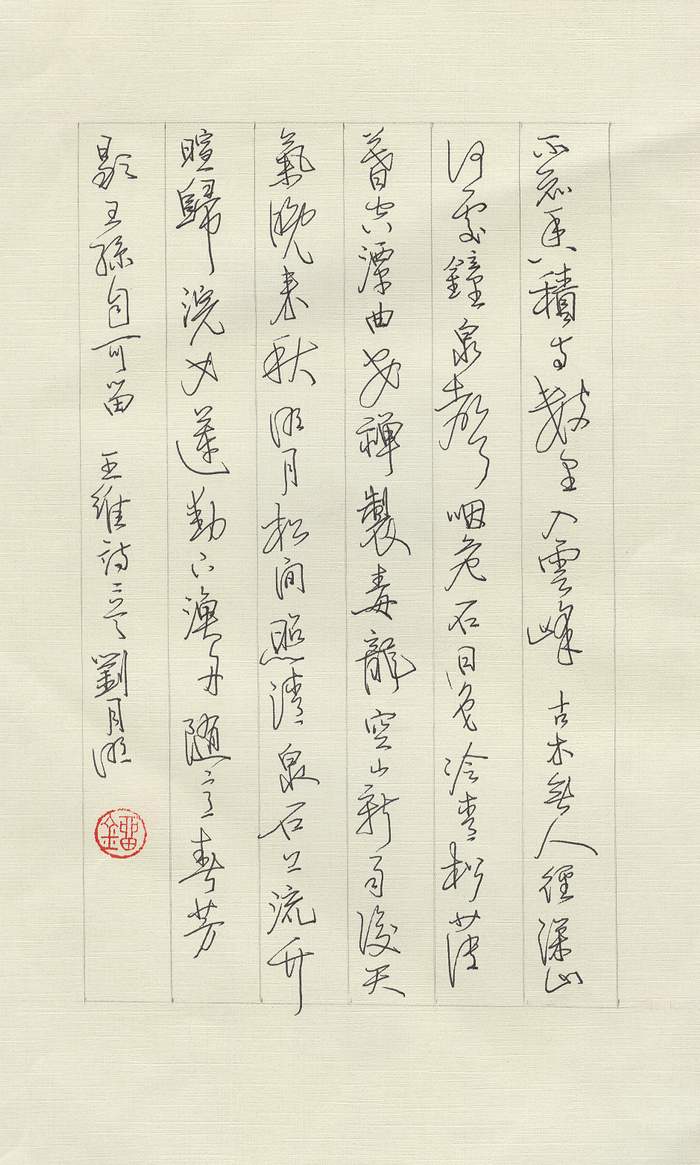 不知香積寺數里入雲峰古木無人徑深山
何處鐘泉聲咽危石日色冷青松薄
暮空潭曲安禪製毒龍空山新雨後天
氣晚來秋明月松間照清泉石上流竹
喧歸浣女蓮動下漁舟隨意春芳
歇王孫自可留 王維詩二首 劉月明